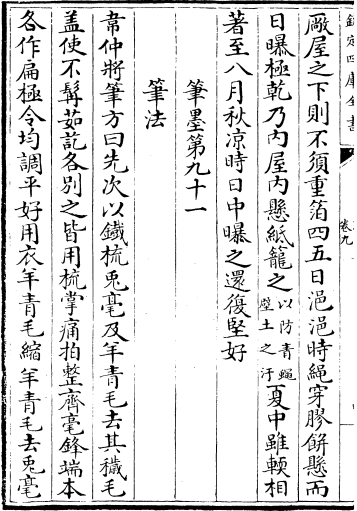 欽定四庫全書
卷九
厰屋之下則不須重箔四五日浥浥時繩穿膠餅懸而
日曝極乾乃内屋内懸紙籠之以防青蠅壁土之汙夏中雖輭相
著至八月秋凉時日中曝之還復堅好
筆墨第九十一
筆法
韋仲將筆方曰先次以鐵梳兎毫及羊青毛去其穢毛
盖使不髯茹訖各别之皆用梳掌痛拍整齊毫鋒端本
各作扁極令均調平好用衣羊青毛縮羊青毛去兎毫